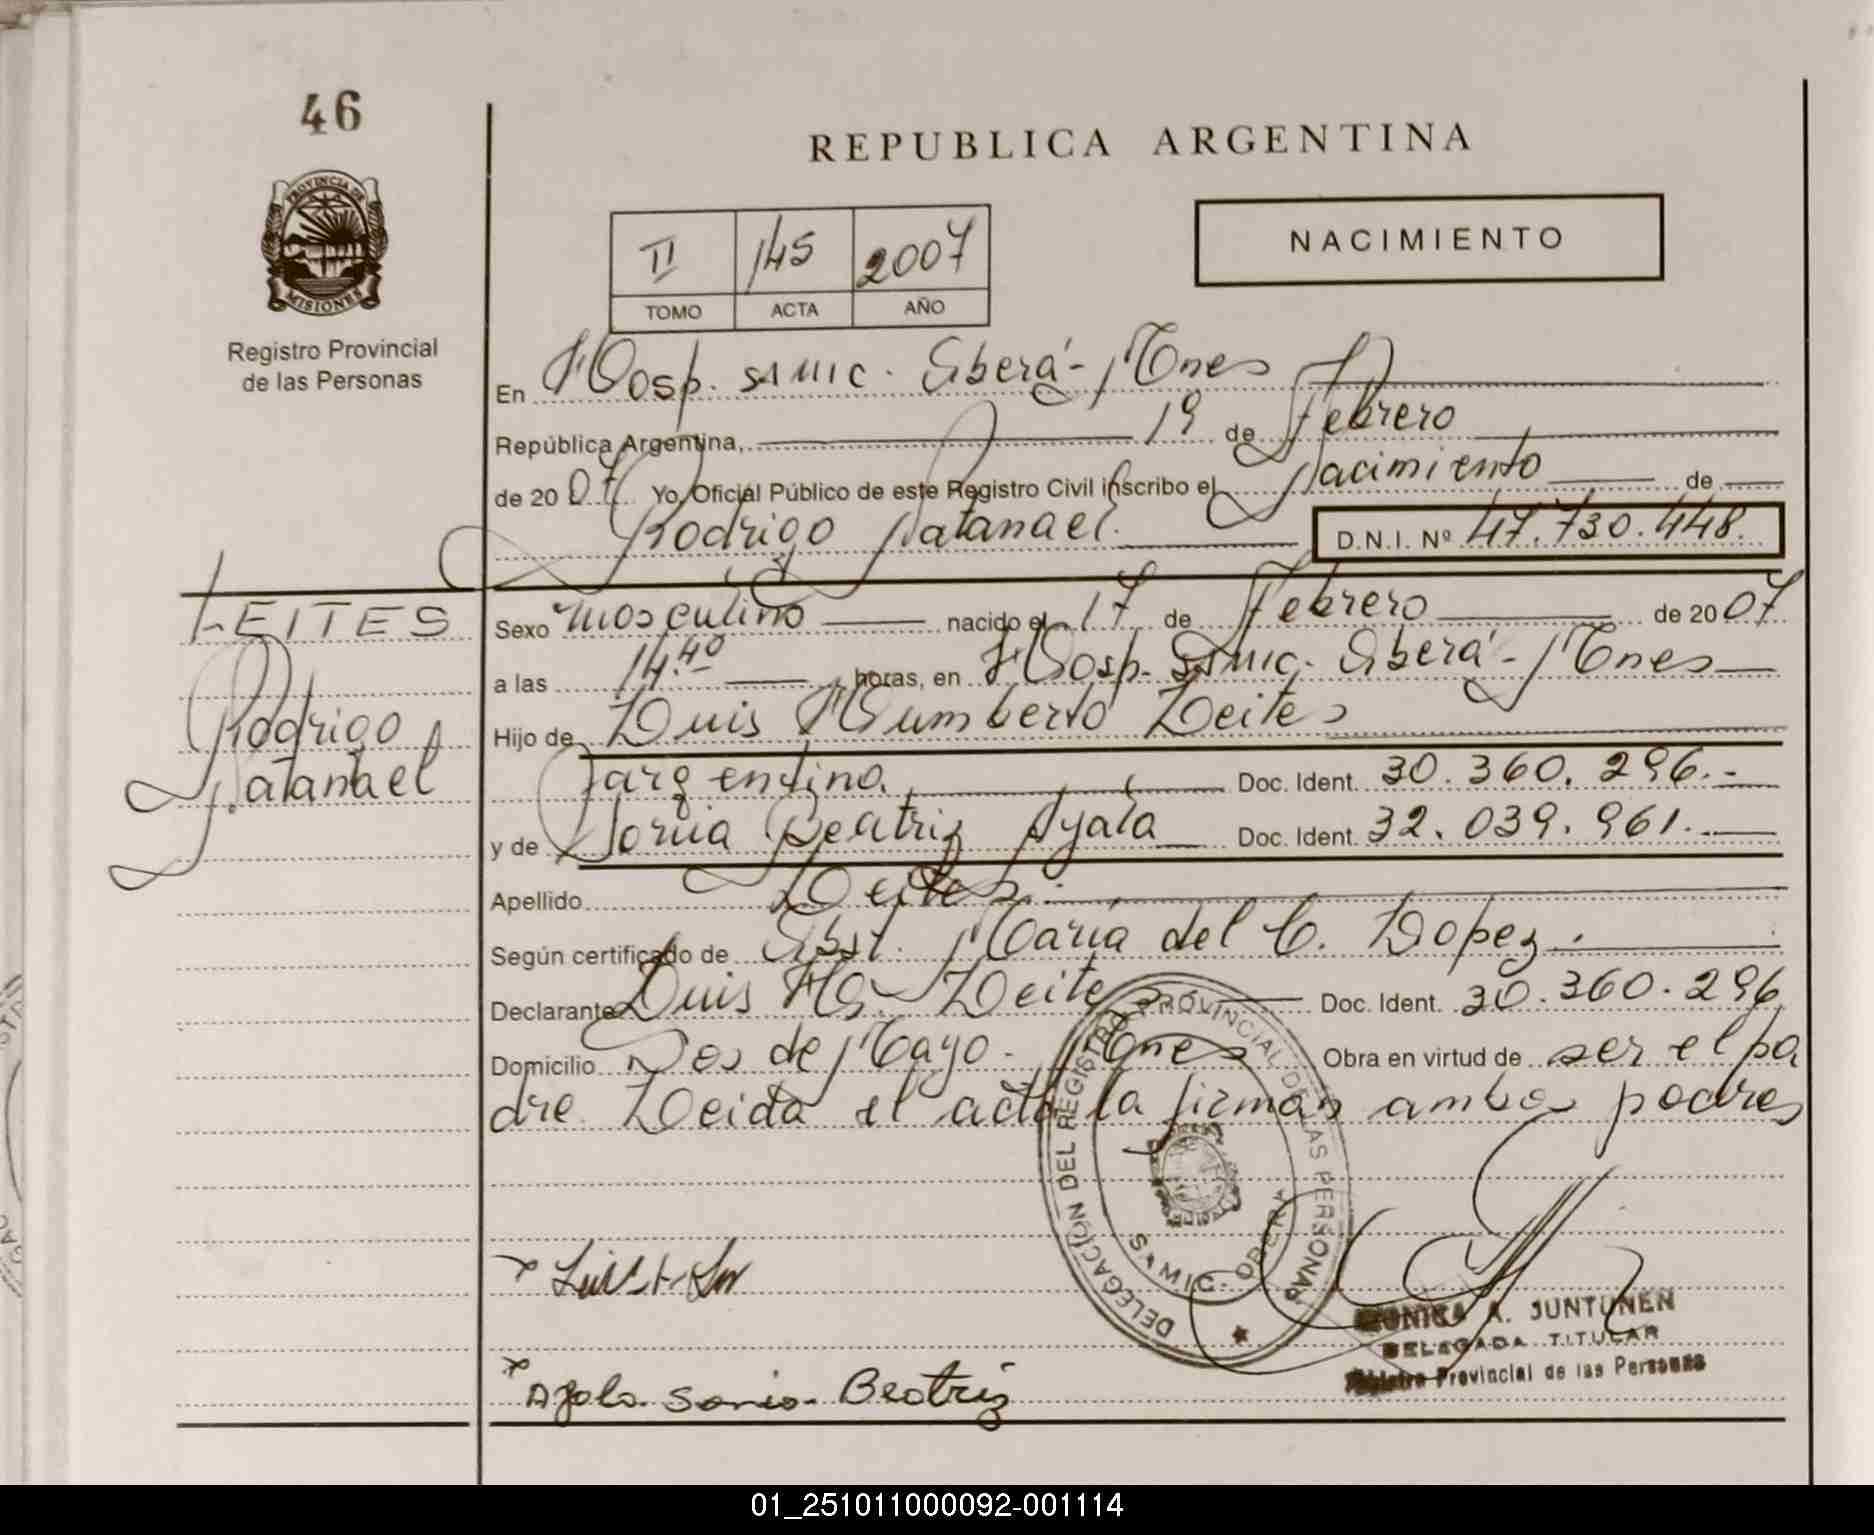 46
REPUBLICA ARGENTINA
PROVINCIA DE
MISIONES
Registro Provincial
de las Personas
NACIMIENTO
II 145 2007
TOMO ACTA AÑO
En Hosp. SAMIC. Oberá - Mnes
República Argentina, 19 de Febrero
de 2007 Yo, Oficial Público de este Registro Civil inscribo el Nacimiento de
Rodrigo Natanael. D.N.I. Nº 47.730.448.
LEITES
Rodrigo
Natanael
Sexo masculino nacido el 17 de Febrero de 2007
a las 14.40 horas, en Hosp. SAMIC. Oberá - Mnes
Hijo de Luis Humberto Leites
argentino. Doc. Ident. 30.360.296.-
y de Sonia Beatriz Ayala Doc. Ident. 32.039.961.
Apellido Leites.
Según certificado de Obst. María del C. Lopez.
Declarante Luis H. Leites Doc. Ident. 30.360.296
Domicilio Dos de Mayo - Mnes Obra en virtud de ser el pa
dre Leida el acta la firman ambos padres
DELEGACIÓN DEL REGISTRO PROVINCIAL DE LAS PERSONAS
SAMIC - OBERÁ
Ayala Sonia Beatriz
MONICA A. JUNTUNEN
DELEGADA TITULAR
Registro Provincial de las Personas
01_251011000092-001114